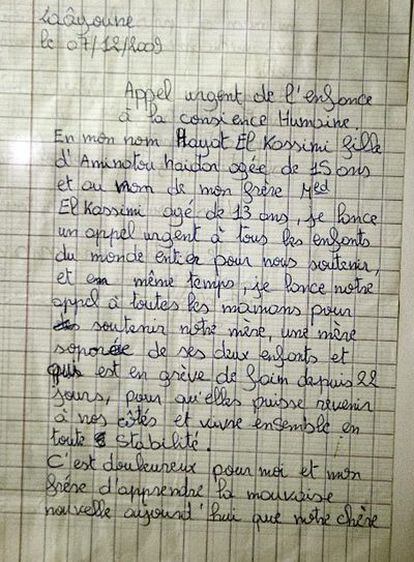 Laâyoune
le 07/12/2009
Appel urgent de l'enfance
à la consience Humaine
En mon nom Hayat El Kassimi fille
d'Aminatou haidar agée de 15 ans
et au nom de mon frère Med
El Kassimi agé de 13 ans, je lance
un appel urgent à tous les enfants
du monde entier pour nous soutenir,
et en même temps, je lance notre
appel à toutes les mamans pour
soutenir notre mère, une mère
soporée de ses deux enfants et
qui est en grève de faim depuis 22
jours, pour qu'elles puisse revenir
à nos côtés et vivre ensemble en
toute stabilité.
C'est douleureux pour moi et mon
frére d'apprendre la mauvaise
nouvelle aujourd'hui que notre chère